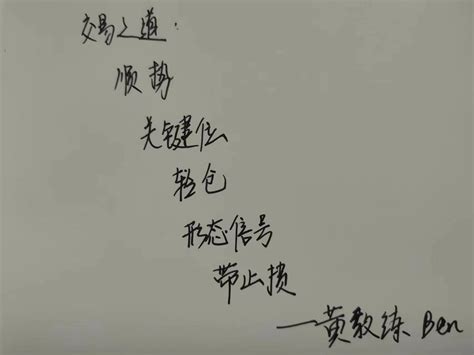 交易之道：
顺势
关键位
轻仓
形态信号
带止损
——黄教练 Ben